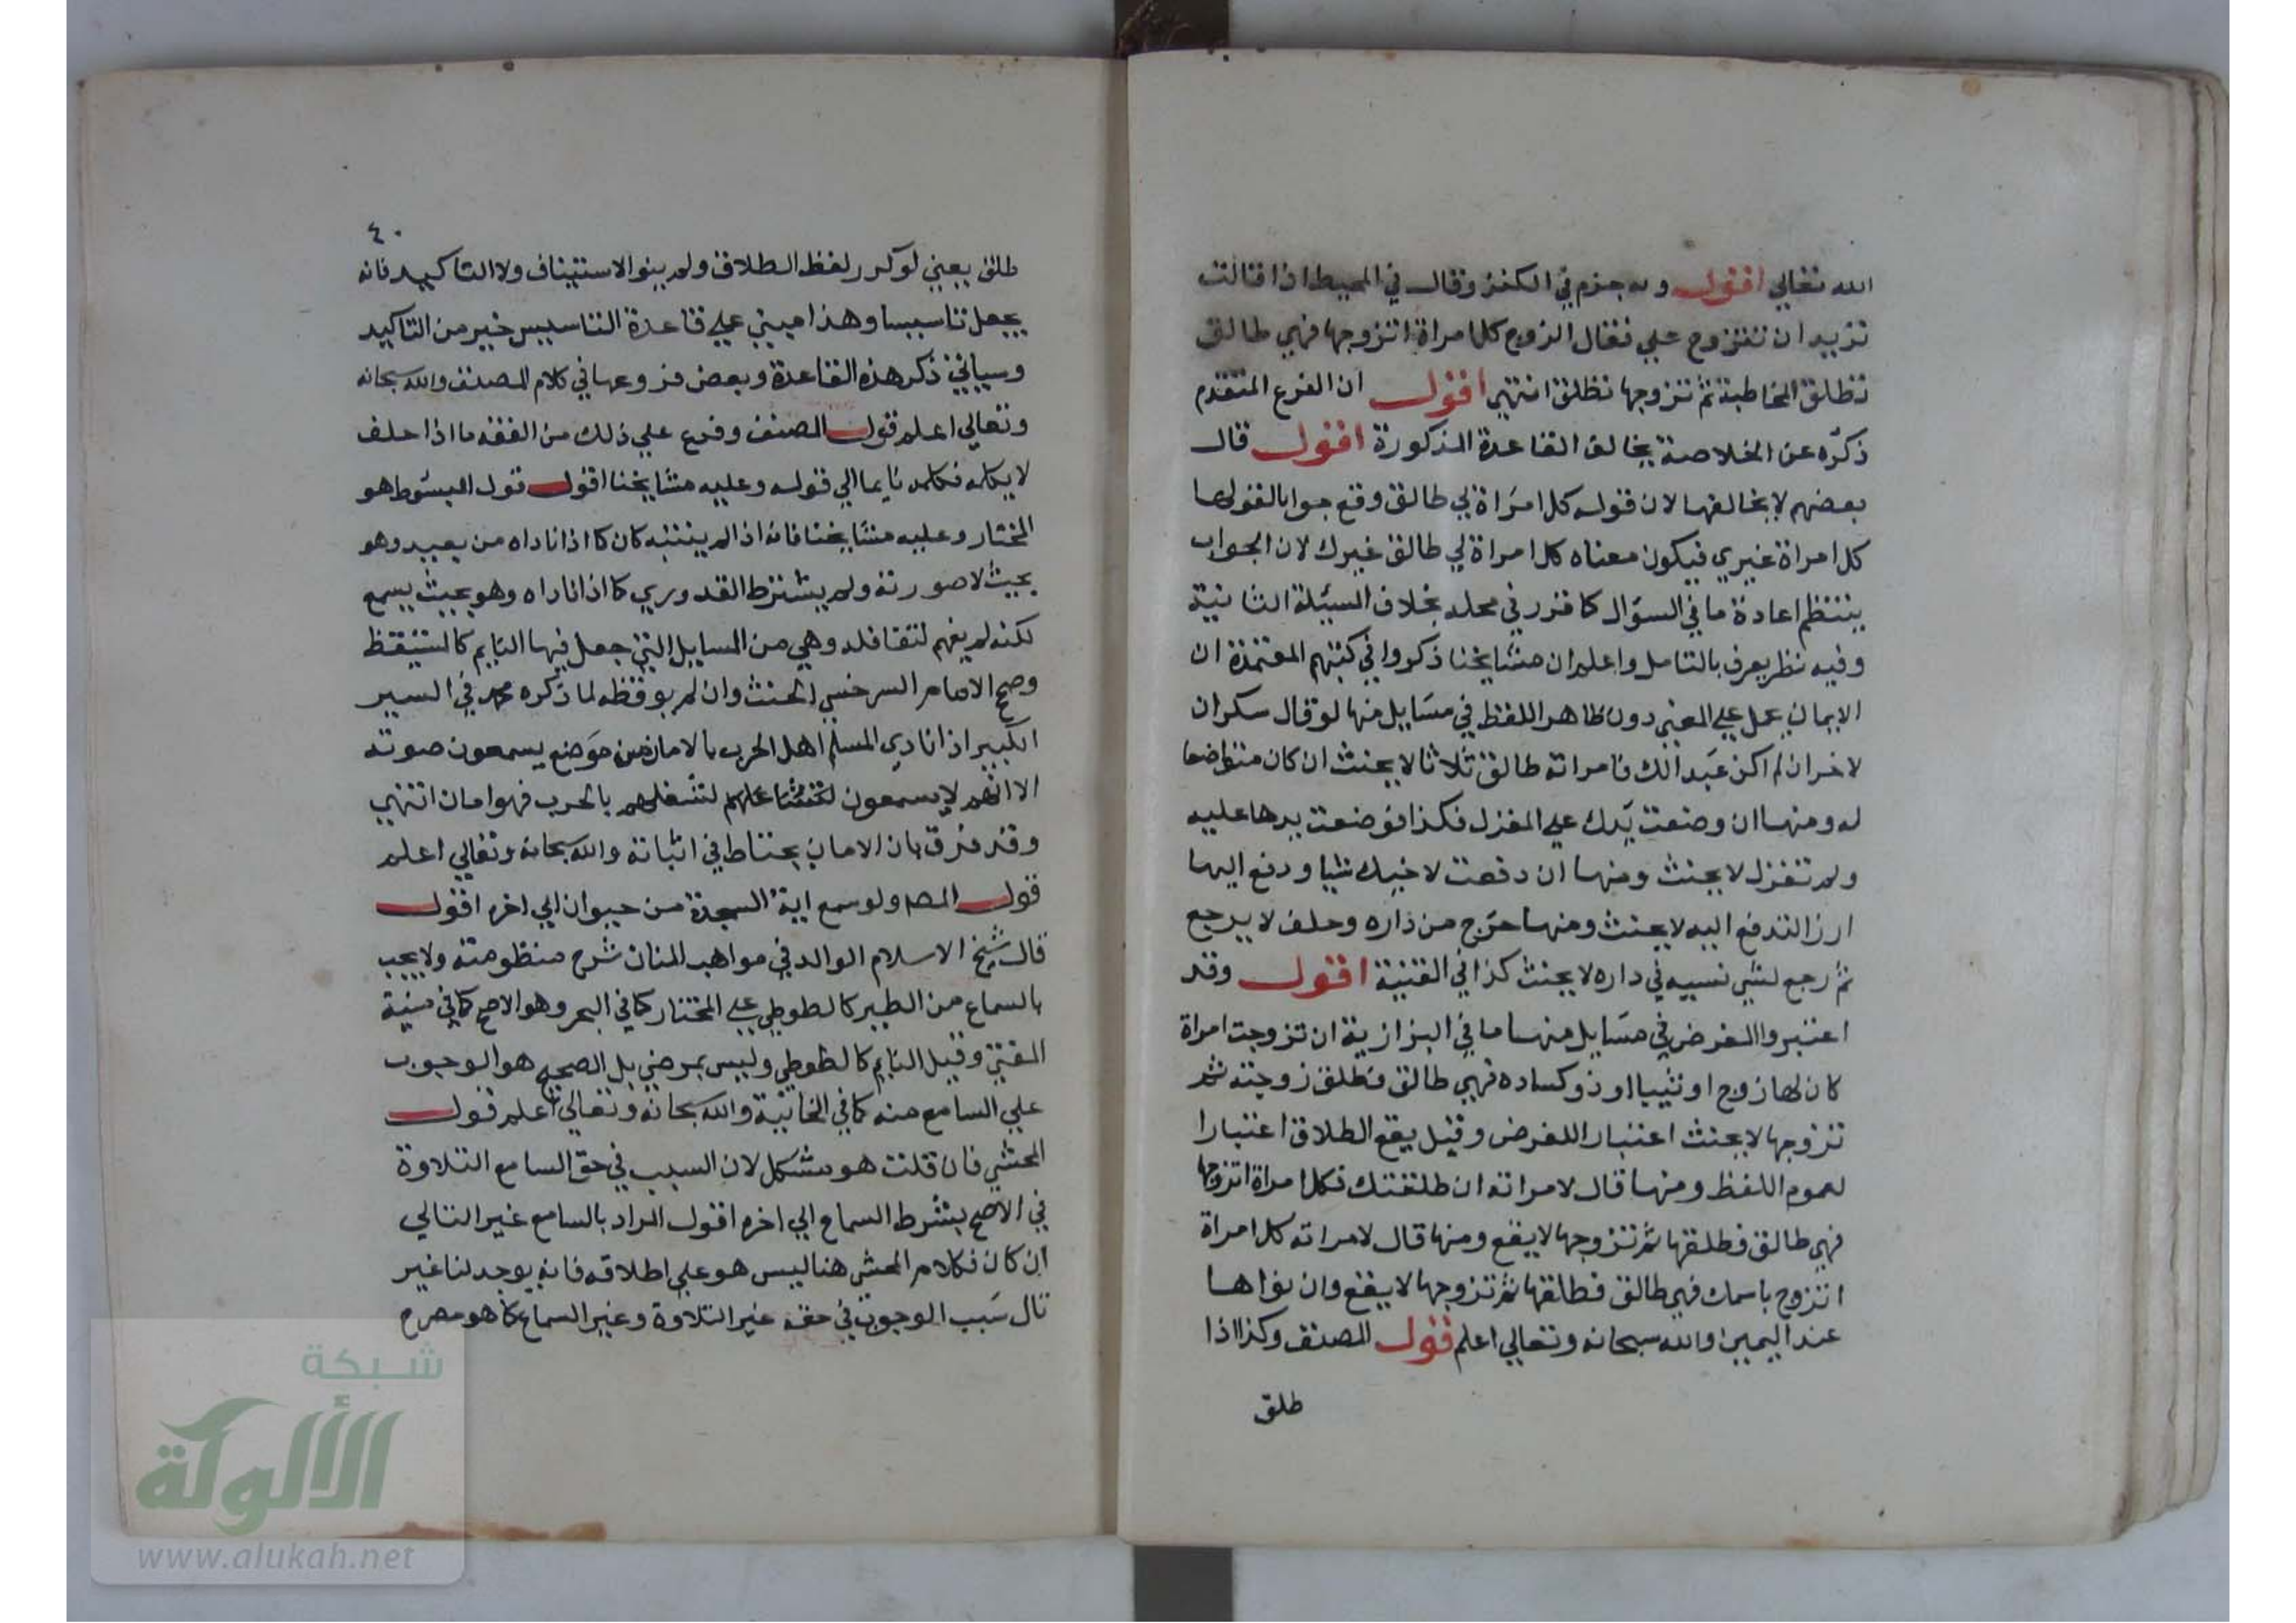 الله تعالي اقول وبه جزم في الكنز وقال في المحيط اذا قالت
تريد ان تتزوج علي فقال الزوج كل امراة اتزوجها فهي طالق
تطلق المخاطبة ثم تزوجها تطلق انتهي اقول ان الفرع المتقدم
ذكره عن الخلاصة يخالف القاعدة المذكورة اقول قال
بعضهم لا يخالفها لان قوله كل امراة لي طالق وقع جوابا لقولها
كل امراة غيري فيكون معناه كل امراة لي طالق غيرك لان الجواب
ينتظم اعادة ما في السؤال كما قرر في محله بخلاف السيئلة الثانية
وفيه نظر يعرف بالتامل واعلم ان مشايخنا ذكروا في كتبهم المعتمدة ان
الايمان عمل علي المعني دون ظاهر اللفظ في مسايل منها لو قال سكران
لاخر ان لم اكن عبدا لك فامراته طالق ثلاثا لا يحنث ان كان متواضعا
له ومنها ان وضعت يدك علي المغزل فكذا فوضعت يدها عليه
ولم تغزل لا يحنث ومنها ان دفعت لاخيك شيا ودفع اليها
ارز التدفع اليه لا يحنث ومنها خرج من داره وحلف لا يرجع
ثم رجع لشي نسيه في داره لا يحنث كذا في القنية اقول وقد
اعتبروا الغرض في مسايل منها ما في البزازية ان تزوجت امراة
كان لها زوج او ثيبا او ذوكساده فهي طالق فطلق زوجته ثم
تزوجها لا يحنث اعتبارا للغرض وقيل يقع الطلاق اعتبارا
لعموم اللفظ ومنها قال لامراته ان طلقتك فكل امراة اتزوجها
فهي طالق فطلقها ثم تزوجها لا يقع ومنها قال لامراته كل امراة
اتزوج باسمك فهي طالق فطلقها ثم تزوجها لا يقع وان نواها
عند اليمين والله سبحانه وتعالي اعلم قول المصنف وكذا اذا
طلق
٤٠
طلق يعني لو كرر لفظ الطلاق ولم ينو الاستيناف ولا التاكيد فانه
يجعل تاسيسا وهذا مبني علي قاعدة التاسيس خير من التاكيد
وسياتي ذكر هذه القاعدة وبعض فروعها في كلام المصنف والله سبحانه
وتعالي اعلم قول المصنف وفرع علي ذلك من الفقه ما اذا حلف
لا يكلمه فكلمه نايما الي قوله وعليه مشايخنا اقول قول المبسوط هو
المختار وعليه مشايخنا فانه اذا لم يتنبه كان كما اذا ناداه من بعيد وهو
بحيث لا صورته ولم يشترط القدوري كما اذا ناداه وهو بحيث يسمع
لكنه لم يفهم لتغافله وهي من المسايل التي جعل فيها النايم كالمستيقظ
وصح الامام السرخسي الحنث وان لم يوقظه لما ذكره محمد في السير
الكبير اذا نادي المسلم اهل الحرب بالامان من موضع يسمعون صوته
الا انهم لا يسمعون لتشاغلهم لشغلهم بالحرب فهو امان انتهي
وقد فرق بان الامان يحتاط في اثباته والله سبحانه وتعالي اعلم
قول المص ولو سمع اية السجدة من حيوان الي اخره اقول
قال شيخ الاسلام الوالد في مواهب المنان شرح منظومته ولا يجب
بالسماع من الطير كالطوطي علي المختار كما في البحر وهو الاصح كما في منية
المفتي وقيل النايم كالطوطي وليس بمرضي بل الصحيح هو الوجوب
علي السامع منه كما في الخانية والله سبحانه وتعالي اعلم قول
المحشي فان قلت هو مشكل لان السبب في حق السامع التلاوة
في الاصح بشرط السماع الي اخره اقول المراد بالسامع غير التالي
ان كان فكلام المحشي هنا ليس هو علي اطلاقه فانه يوجد لنا غير
تال سبب الوجوب في حقه غير التلاوة وغير السماع كما هو مصرح
شبكة
الألوكة
www.alukah.net